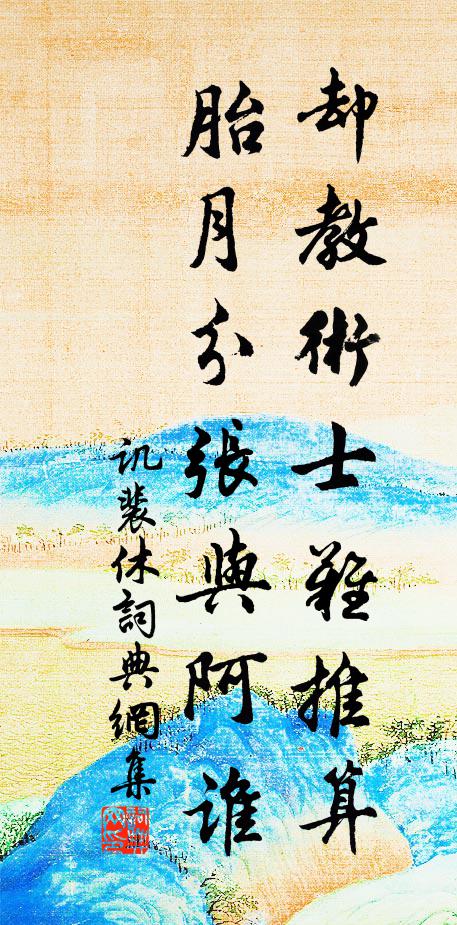 却教術士難推算
胎月分張與阿誰
讥裴休詞典網集